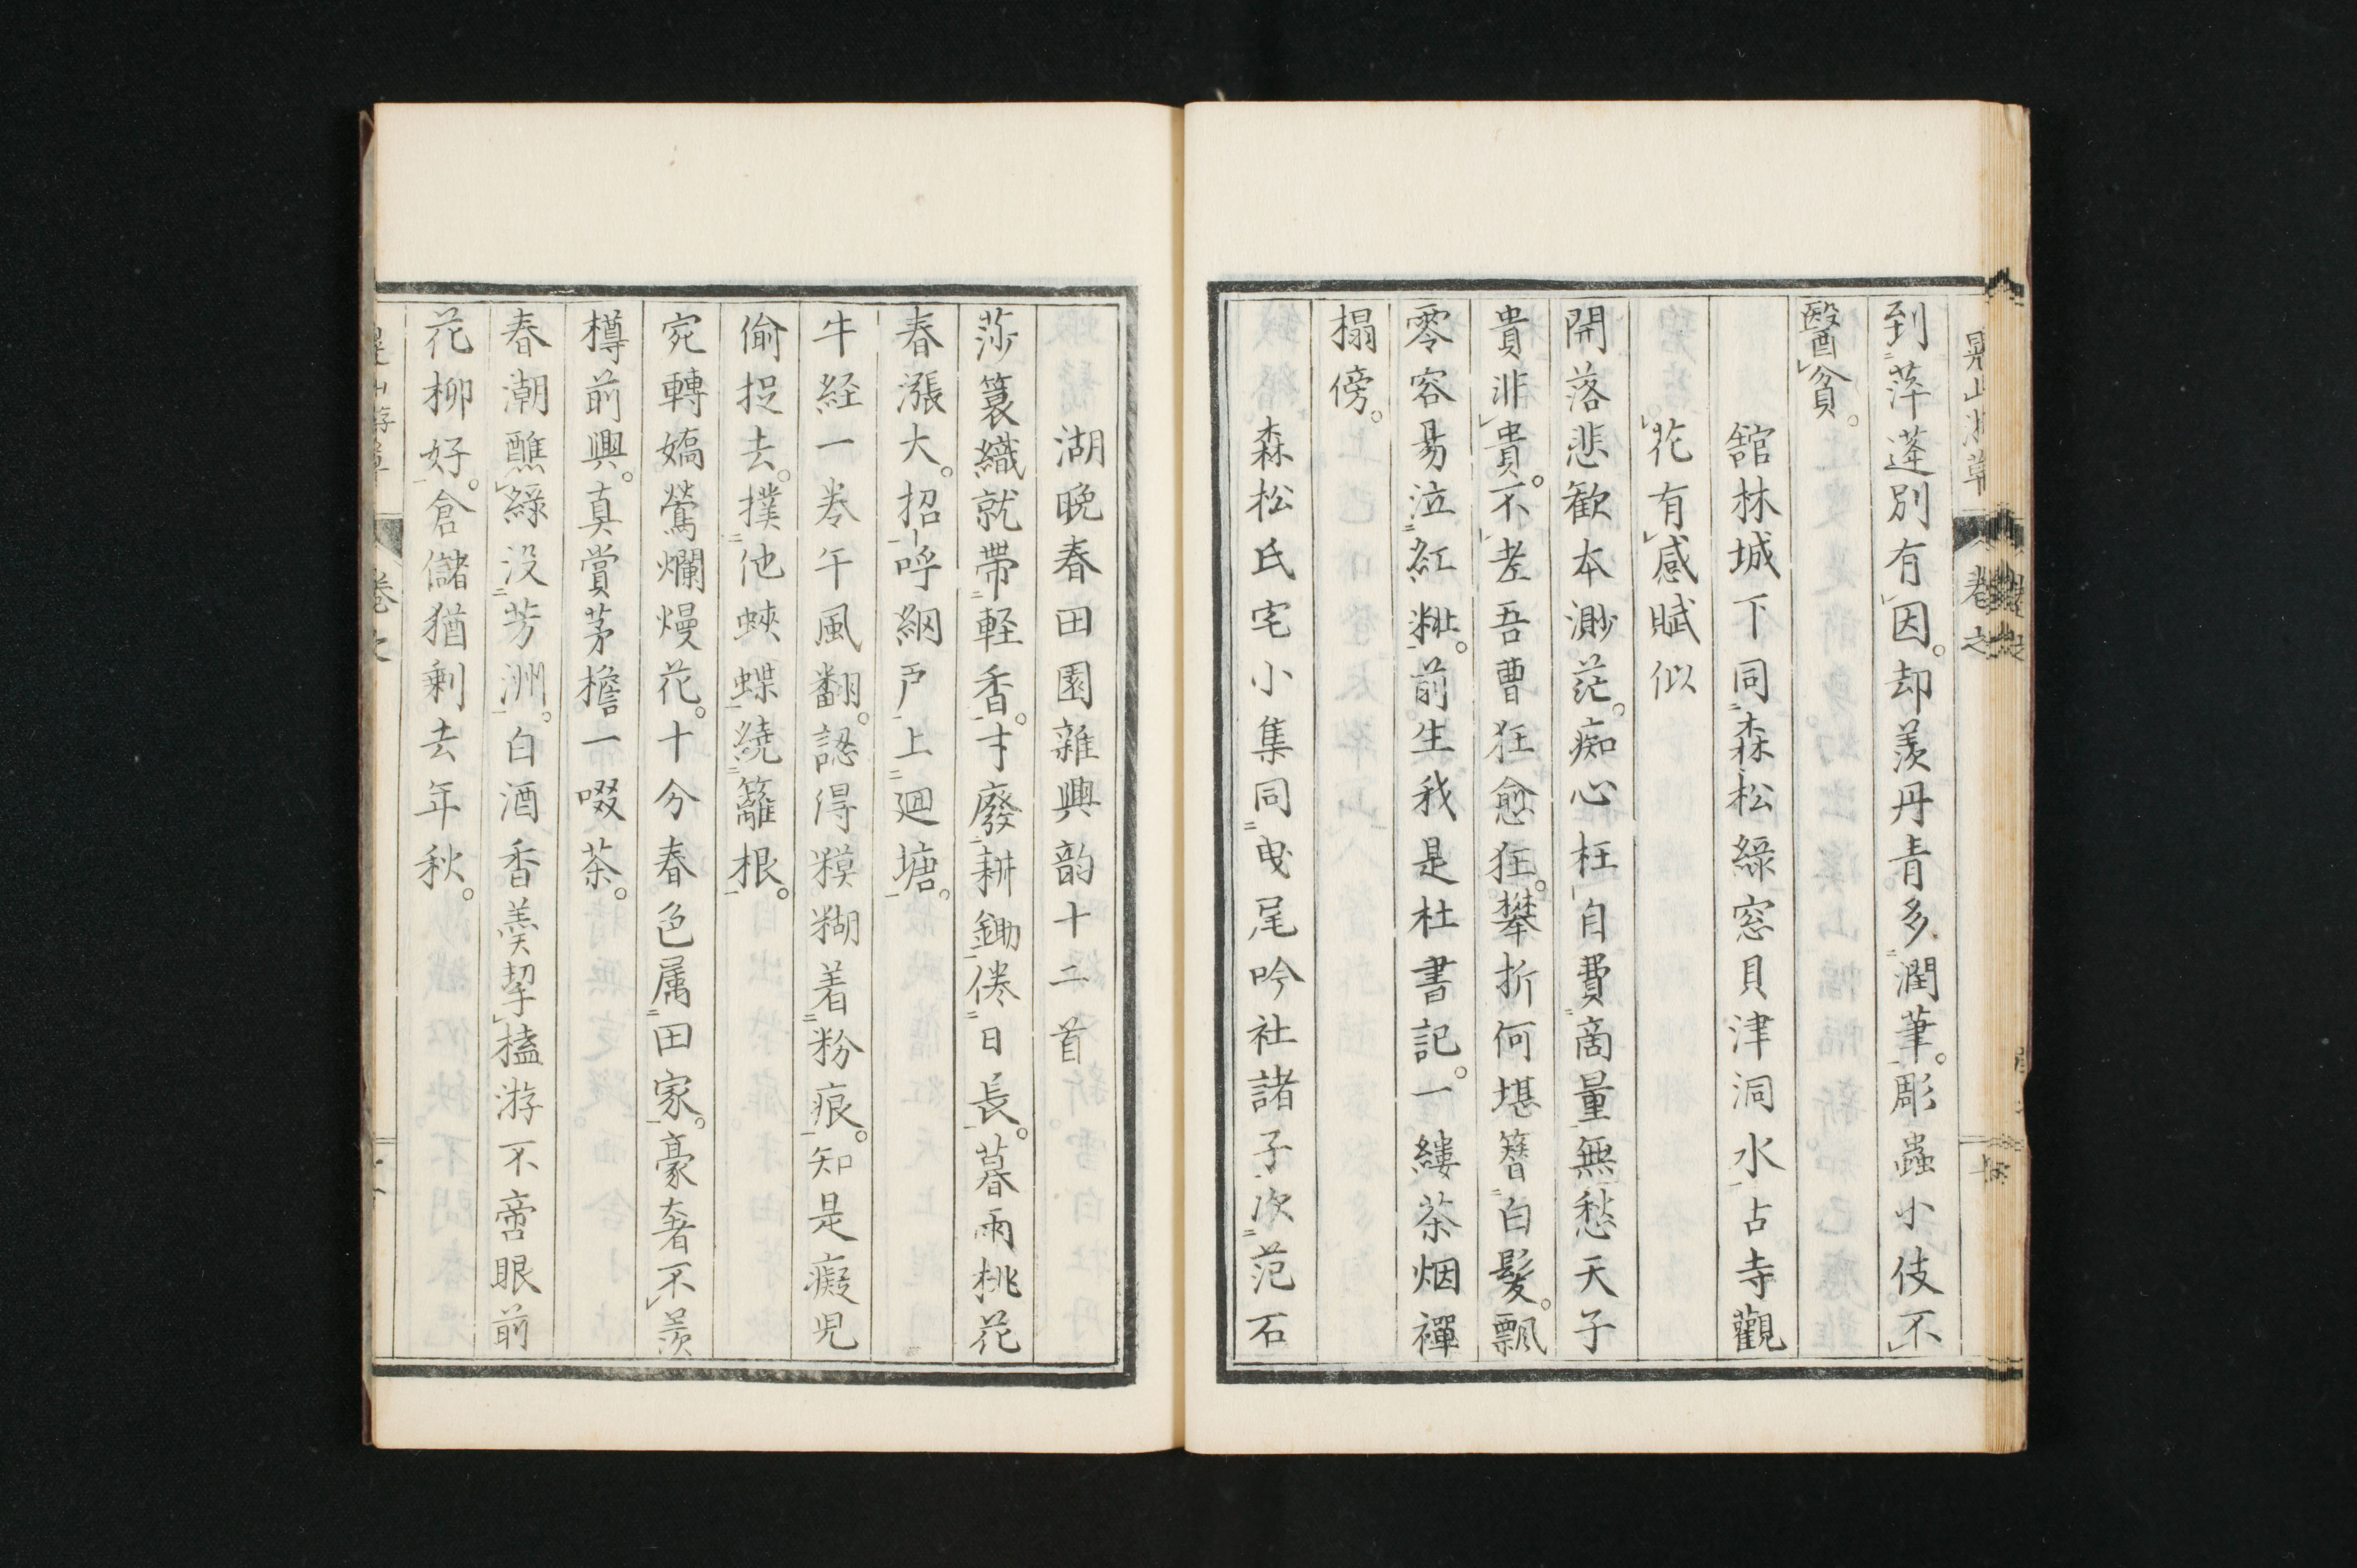 到萍蓬別有因。却羨丹青多潤筆。彫蟲小伎不
醫貧。
舘林城下同森松綠窓貝津洞水占寺觀
花有感賦似
開落悲歡本渺茫。痴心枉自費商量無愁天子
貴非貴。不老吾曹狂愈狂。攀折何堪簪白髮。飄
零容易泣紅粧。前生我是杜書記。一縷茶烟禪
榻傍。
森松氏宅小集同曳尾吟社諸子次范石
湖晩春田園雜興韵十二首
莎簑織就帶軽香。才廢耕鋤倦日長。暮雨桃花
春漲大。招呼網戸上廻塘。
牛経一巻午風翻。認得糢糊着粉痕。知是癡児
偷捉去。撲他蛺蝶繞籬根。
宛轉嬌鶯爛熳花。十分春色属田家。豪奢不羨
樽前興。真賞茅檐一啜茶。
春潮醮綠没芳洲。白酒香羮挈榼游不啻眼前
花柳好。倉儲猶剩去年秋。